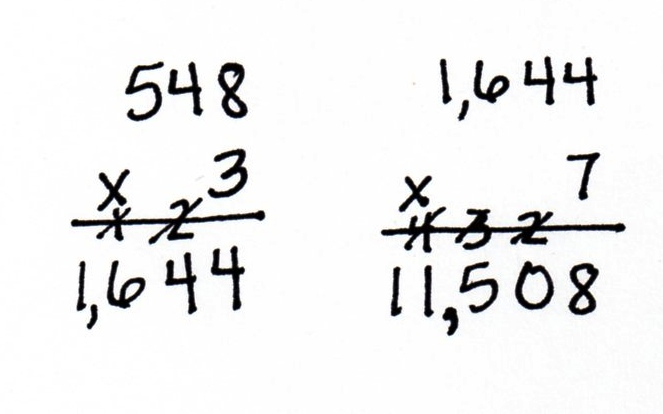 548
x 3
1 2
1,644
1,644
x 7
4 3 2
11,508